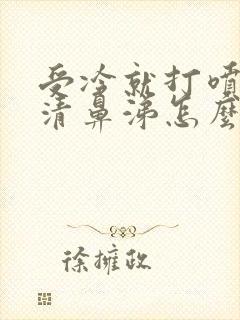 受冷就打噴
清鼻涕怎麼
徐擁政